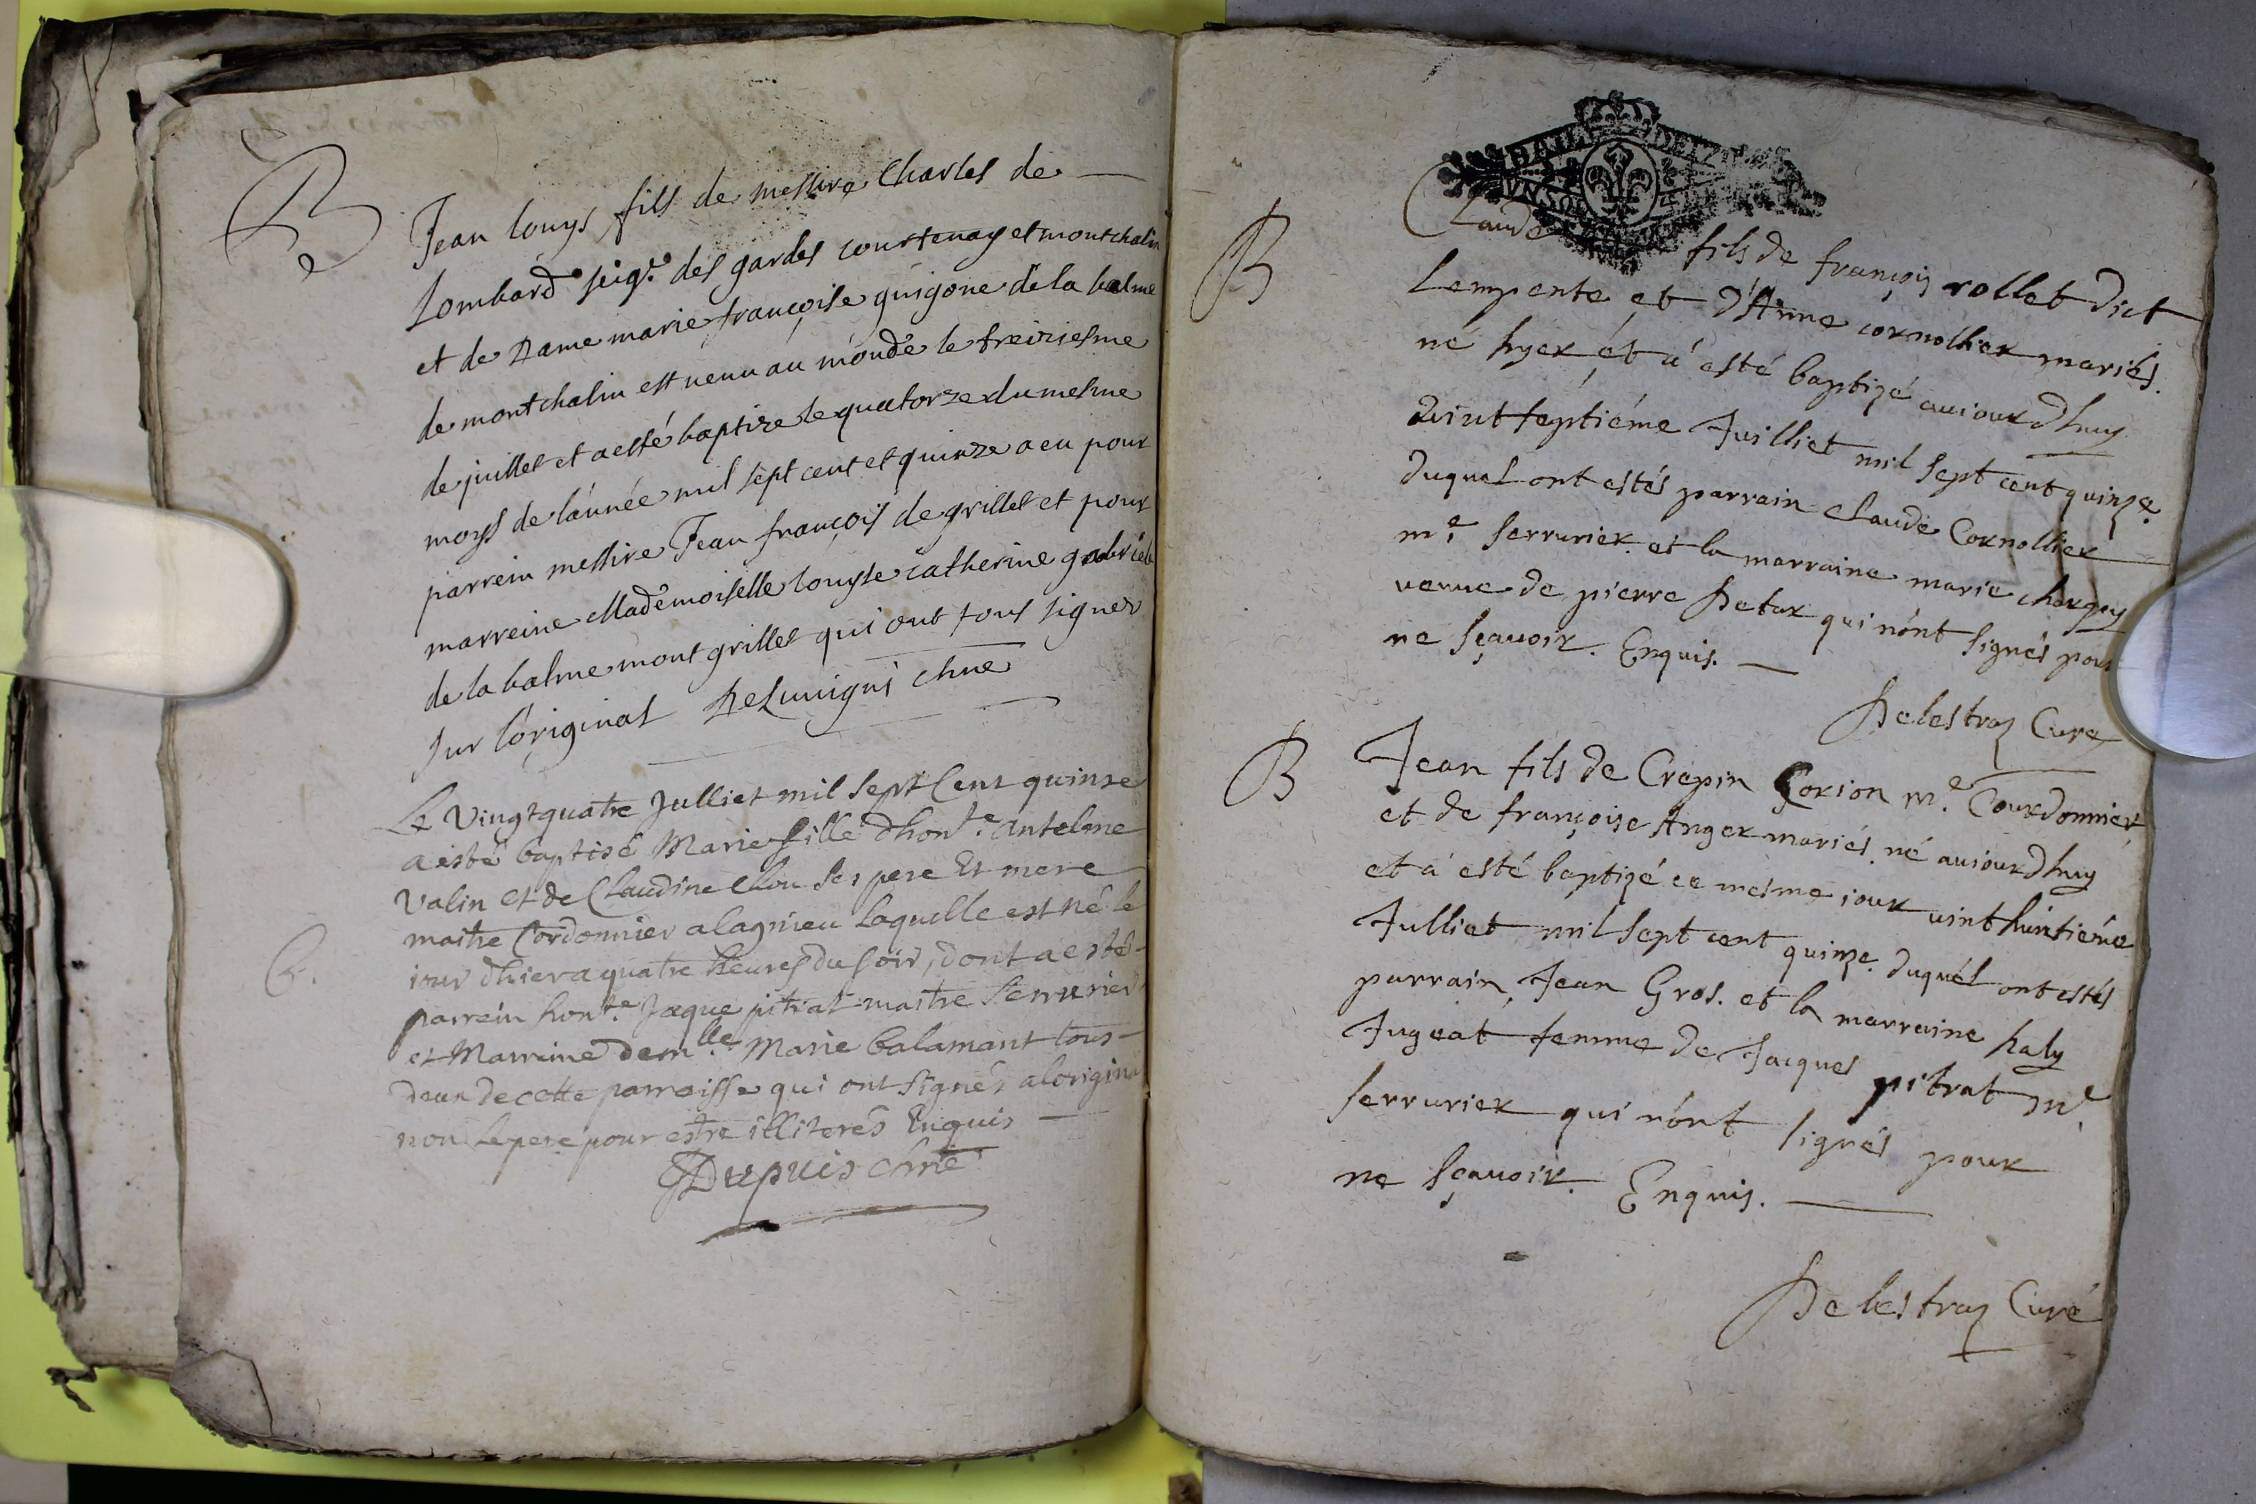 B
Jean louys fils de messire Charles de
Lombard seigr. des gardes courtenay et montchalin
et de Dame marie françoise guigone de la balme
de montchalin est venu au monde le treiziesme
de juillet et a esté baptize le quatorze du mesme
moys de l'année mil sept cent et quinze a eu pour
parrein messire Jean françois de grillet et pour
marreine Mademoiselle louyse catherine gabrielle
de la balme mont grillet qui ont tous signez
sur l'original DeLuvigni chne
B.
Le Vingt quatre Julliet mil sept Cent quinze
a esté baptisé Marie fille d'honte. antelme
Valin et de Claudine ses pere Et mere
maitre Cordonnier a lagnieu laquelle est né le
iour d'hier a quatre heures du soir, dont a esté
parrein honte. Jaque pitrat maitre Serrurier
et Marrine demlle. Marie balamant tous
deux de cette parroisse qui ont signés a loriginal
non le pere pour estre illiterés Enquis
Dupuis chne
B
Claude fils de françois rollet dict
Lempente et d'Anne cornollier mariés.
né hyer et a esté baptizé auiourdhuy
vint septiéme Juilliet mil sept cent quinze.
duquel ont estés parrain Claude Cornollier
me. serrurier. et la marraine marie chargey
veuve de pierre Detar qui nònt signés pour
ne sçavoir. Enquis.
Delestraz Curé
B
Jean fils de Crepin Corion me. Courdonnier
et de françoise Anger mariés. né auiourdhuy
et a esté baptizé ce mesme iour vint huitiéme
Julliet mil sept cent quinze. duquel ont estés
parrain, Jean Gros. et la marraine haly
Jugeat femme de Jacques pitrat me.
serrurier qui nònt signés pour
ne sçavoir. Enquis.
Delestraz Curé